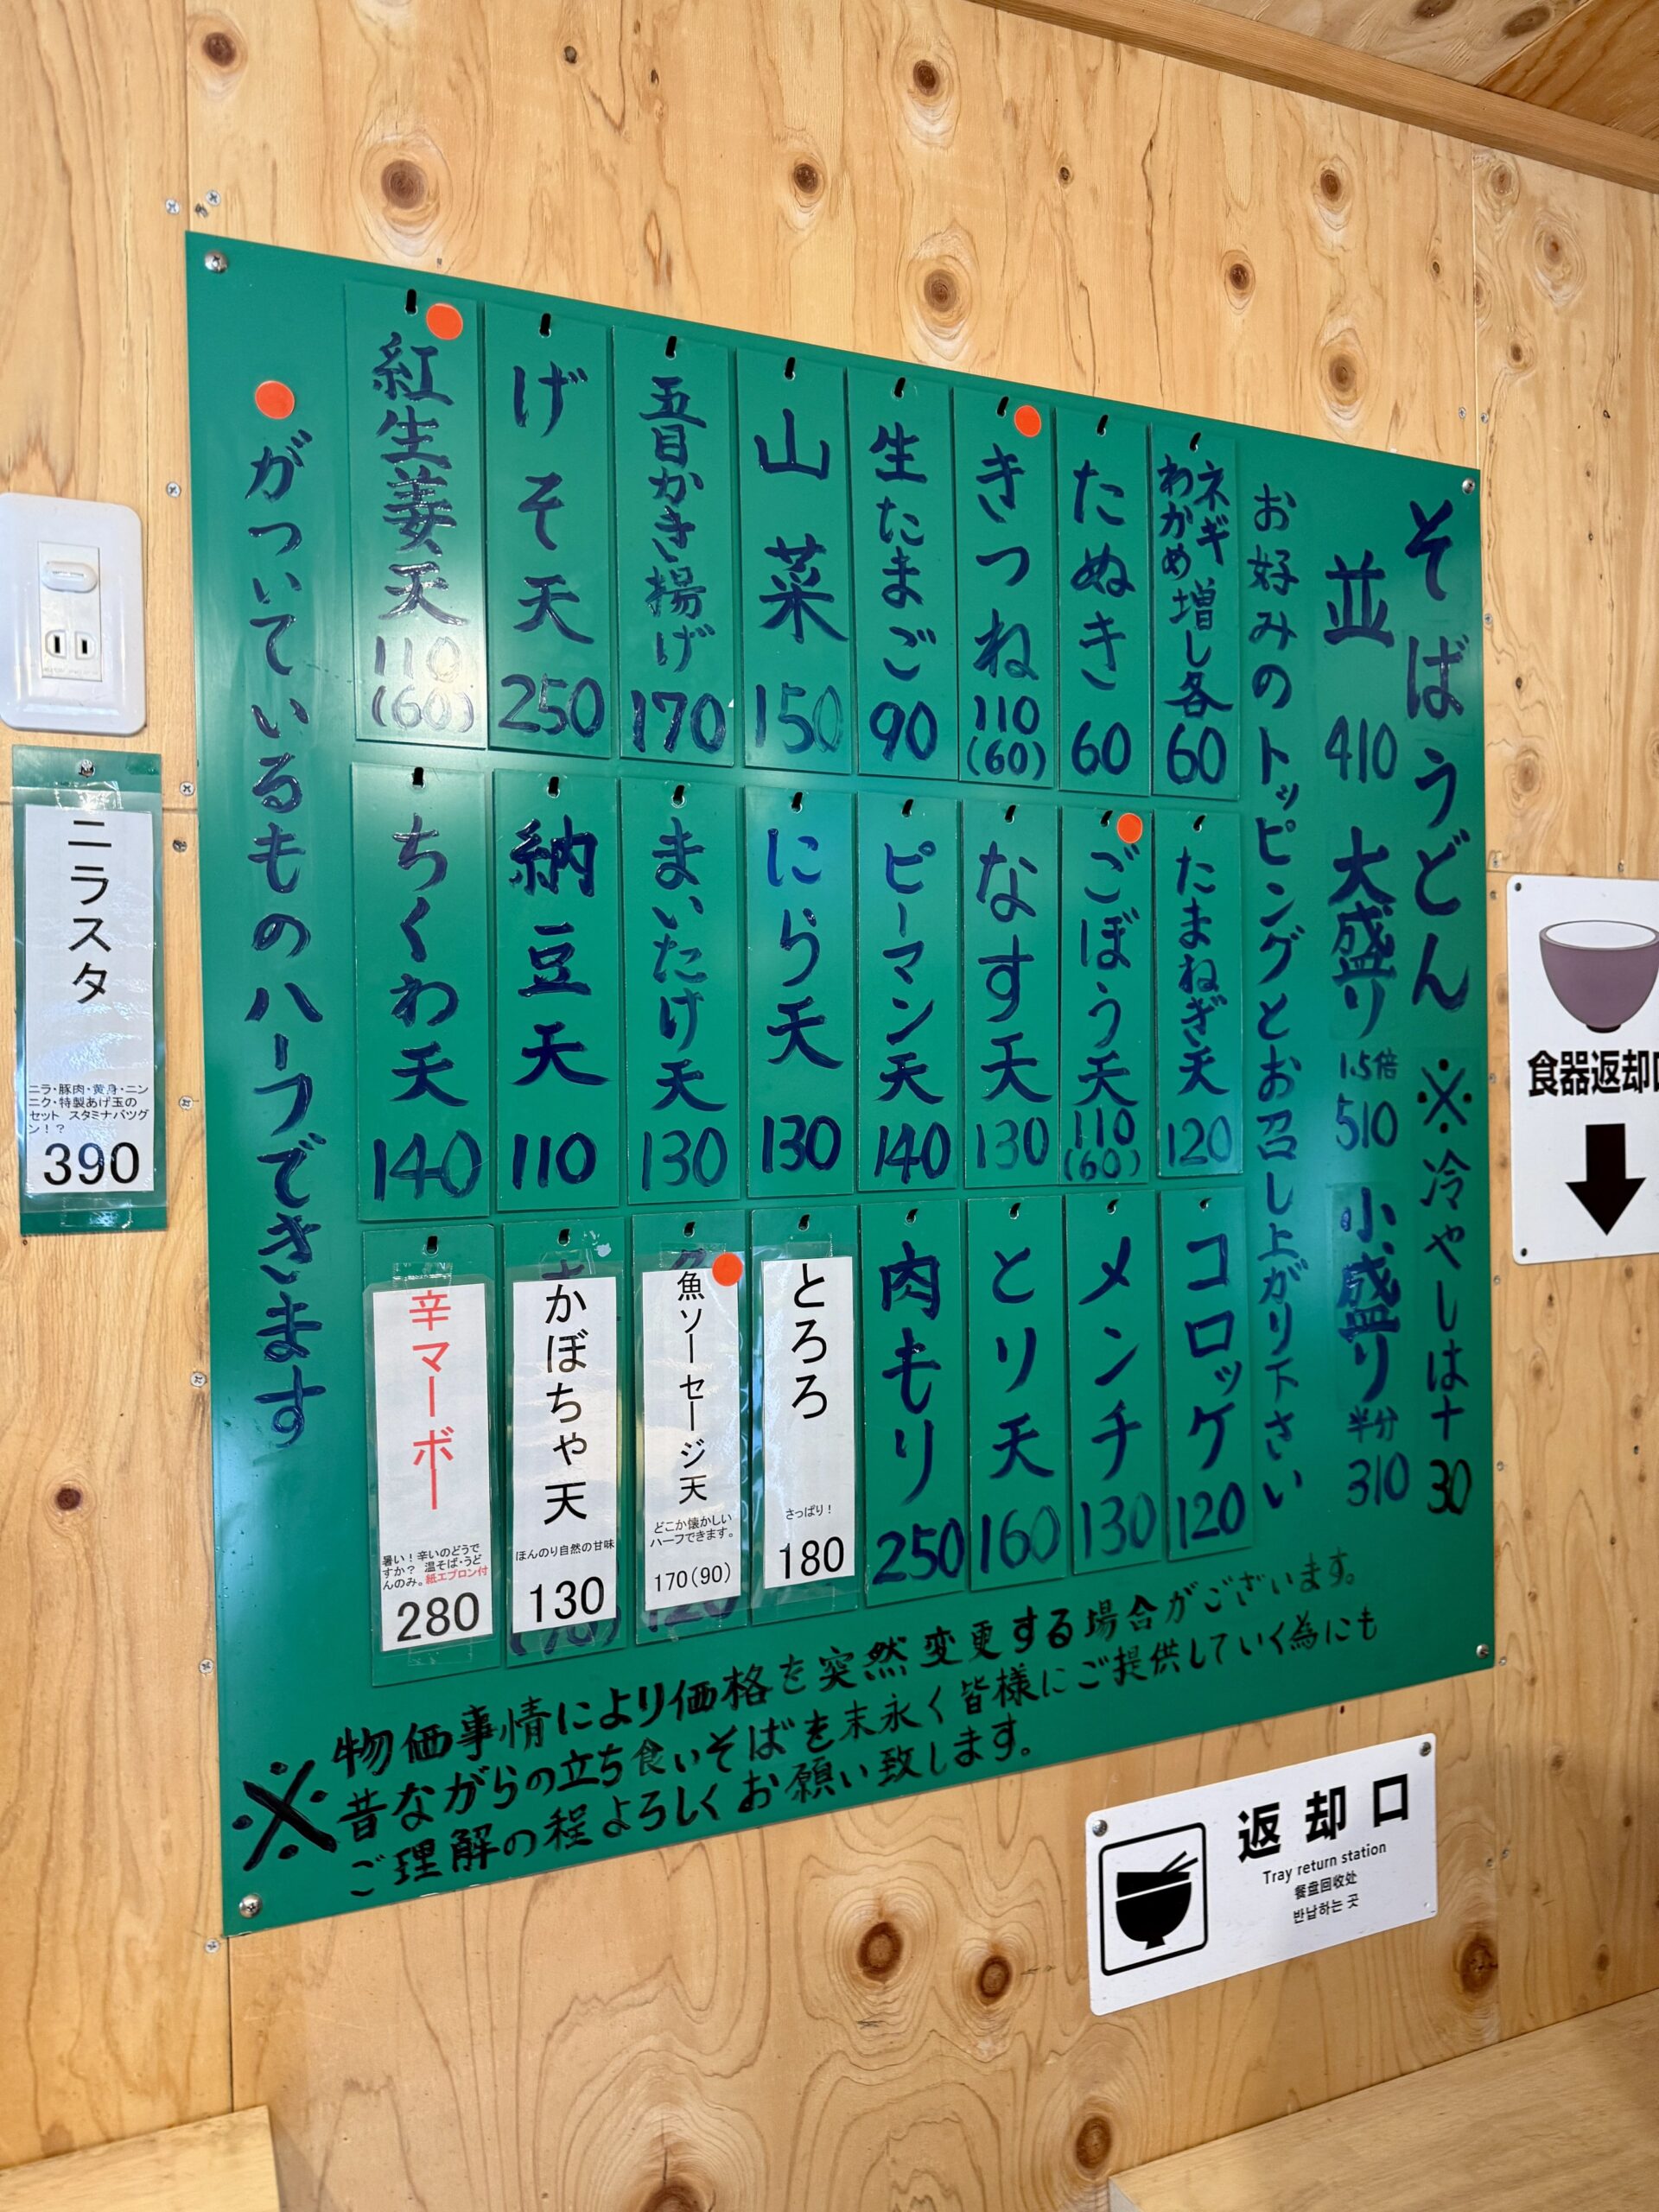 そばうどん ※冷やしは十30
並 410 大盛り 1.5倍 510 小盛り 半分 310
お好みのトッピングとお召し上がり下さい
ネギ
わかめ
増し各
60
たぬき
60
きつね
110
(60)
生たまご
90
山菜
150
五目かき揚げ
170
げそ天
250
紅生姜天
110
(60)
たまねぎ天
120
ごぼう天
110
(60)
なす天
130
ピーマン天
140
にら天
130
まいたけ天
130
納豆天
110
ちくわ天
140
コロッケ
120
メンチ
130
とり天
160
肉もり
250
とろろ
さっぱり！
180
魚ソーセージ天
どこか懐かしい
ハーフできます。
170(90)
かぼちゃ天
ほんのり自然の甘味
130
辛マーボー
暑い！辛いのどうで
すか？ 温そば・うど
んのみ。紙エプロン付
280
がついているものハーフできます
※物価事情により価格を突然変更する場合がございます。
昔ながらの立ち食いそばを末永く皆様にご提供していく為にも
ご理解の程よろしくお願い致します。
ニラスタ
ニラ・豚肉・黄身・ニン
ニク・特製あげ玉の
セット スタミナバツグ
ン！？
390
食器返却口
返却口
Tray return station
餐盘回收处
반납하는 곳